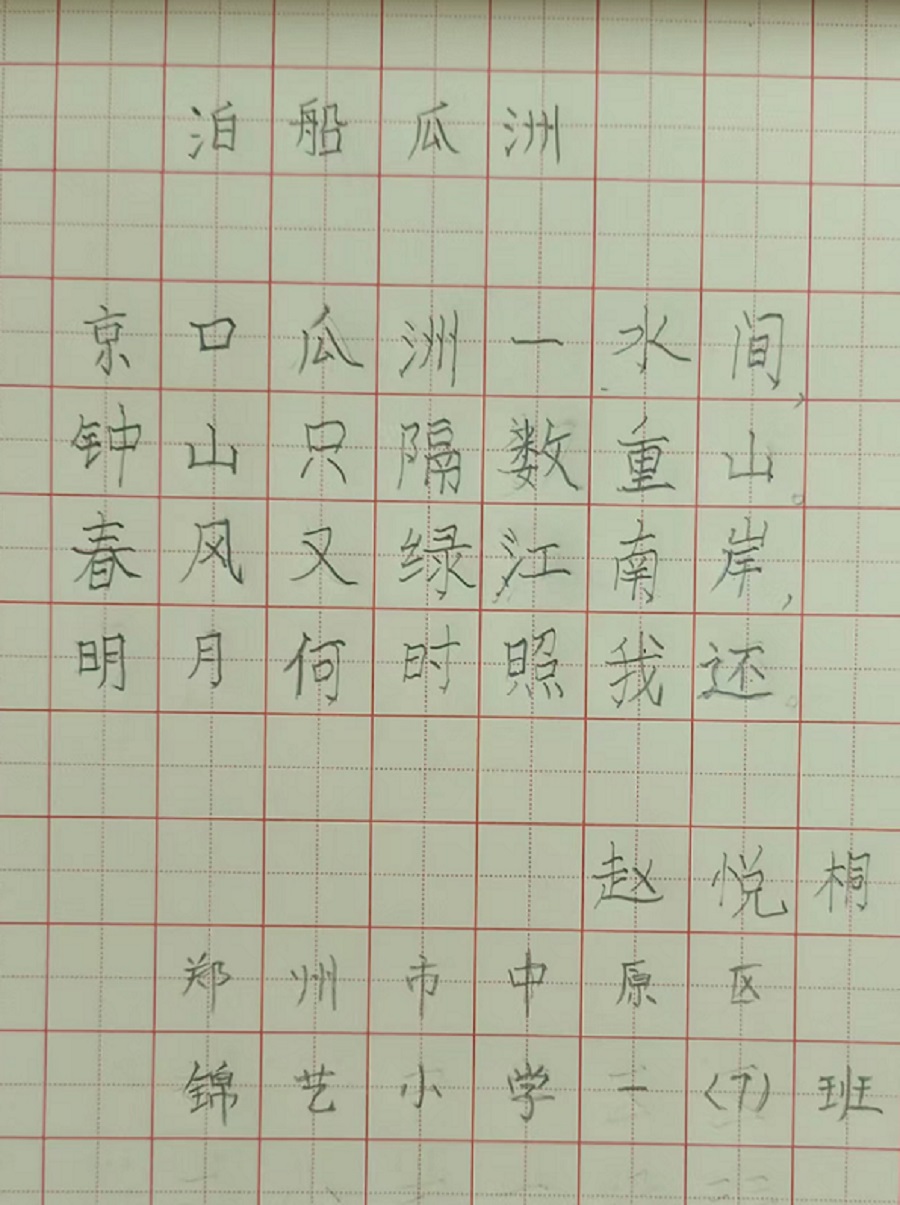 泊船瓜洲
京口瓜洲一水间，
钟山只隔数重山。
春风又绿江南岸，
明月何时照我还。
赵悦桐
郑州市中原区
锦艺小学一（7）班